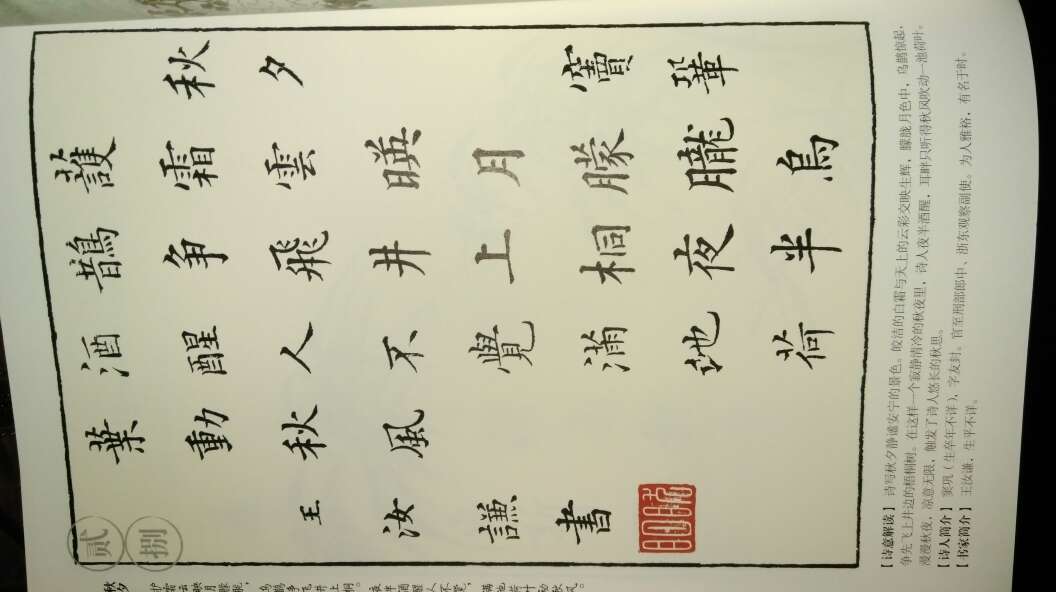 秋夕 竇鞏
護霜雲暎月朦朧烏
鵲争飛井上桐夜半
酒醒人不覺滿地荷
葉動秋風
王汝謙書
【诗意解读】 诗写秋夕静谧安宁的景色。皎洁的白霜与天上的云彩交映生辉，朦胧月色中，乌鹊惊起，
争先飞上井边的梧桐树。在这样一个寂静清冷的秋夜里，诗人夜半酒醒，耳畔只听得秋风吹动一池荷叶。
漫漫秋夜，凉意无限，触发了诗人悠长的秋思。
【诗人简介】 窦巩（生卒年不详），字友封。官至刑部郎中、浙东观察副使。为人雅裕，有名于时。
【书家简介】 王汝谦，生平不详。
贰捌
秋夕
护霜云映月朦胧，乌鹊争飞井上桐。夜半酒醒人不觉，满池荷叶动秋风。